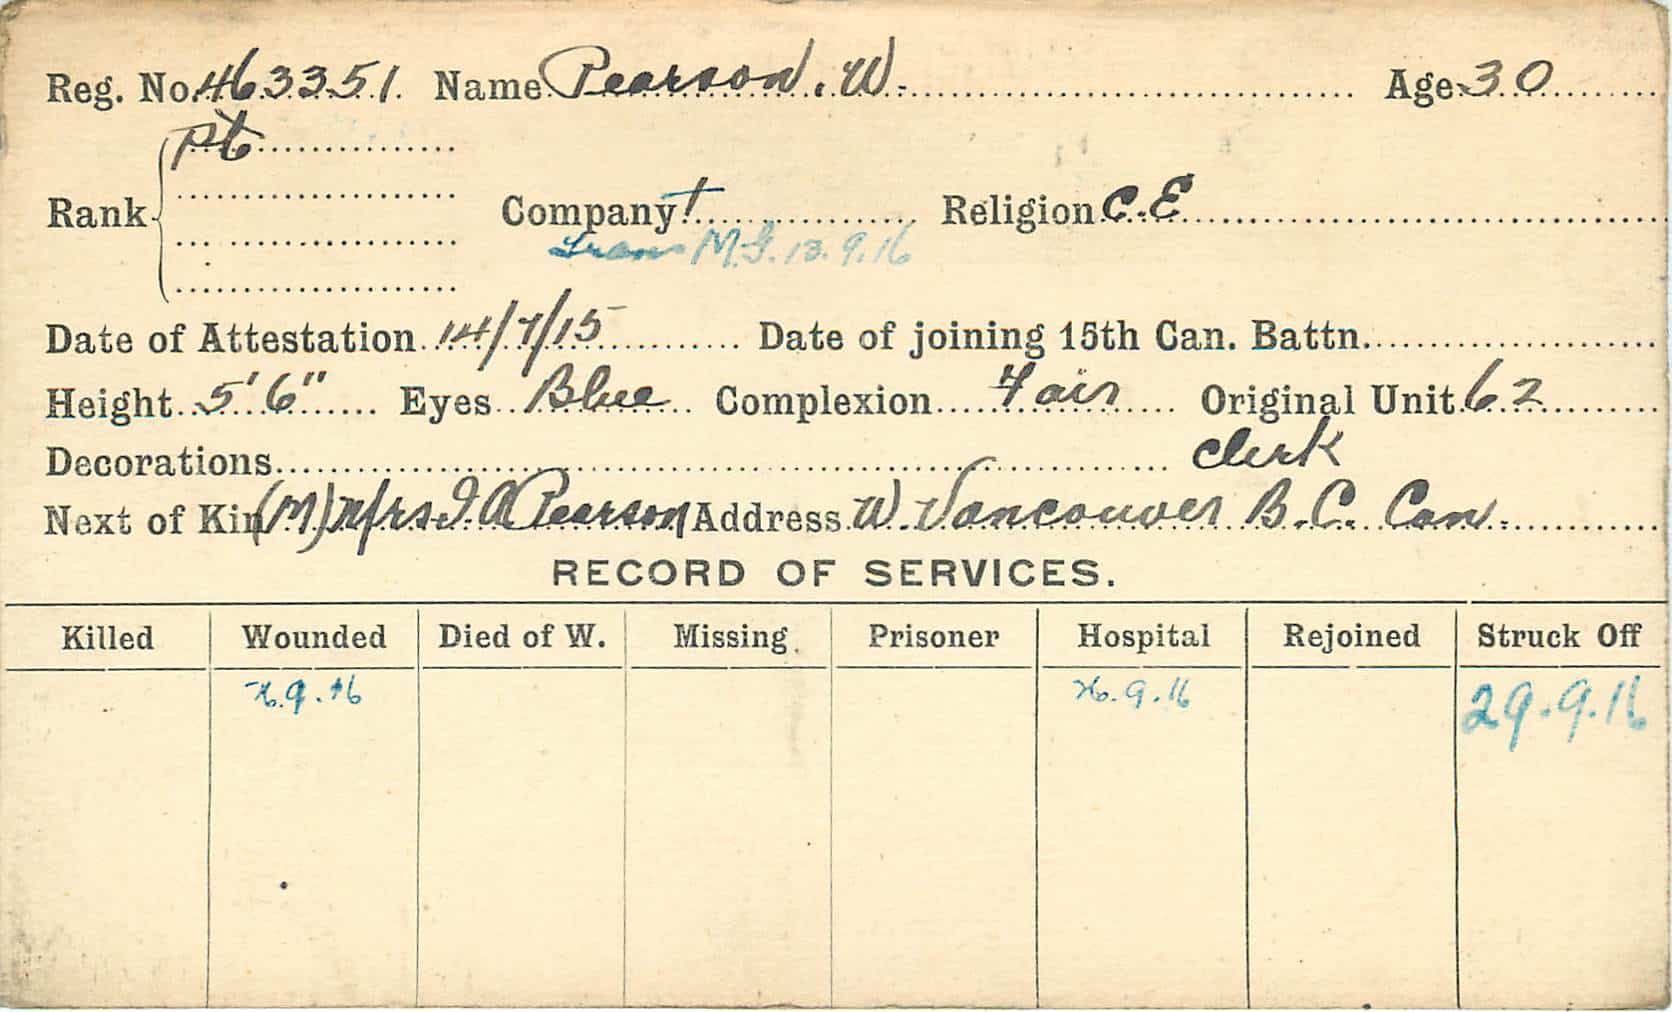 Reg. No. 463351. Name Pearson. W. Age 30
Pt
Rank Company 1 Religion C.E
Trans M.G. 13.9.16
Date of Attestation 14/7/15 Date of joining 15th Can. Battn.
Height 5'6" Eyes Blue Complexion Fair Original Unit 62
Decorations Clerk
Next of Kin (M) Mrs I. A Pearson Address W. Vancouver B.C. Can.
RECORD OF SERVICES.
Killed Wounded Died of W. Missing Prisoner Hospital Rejoined Struck Off
26.9.16 26.9.16 29.9.16